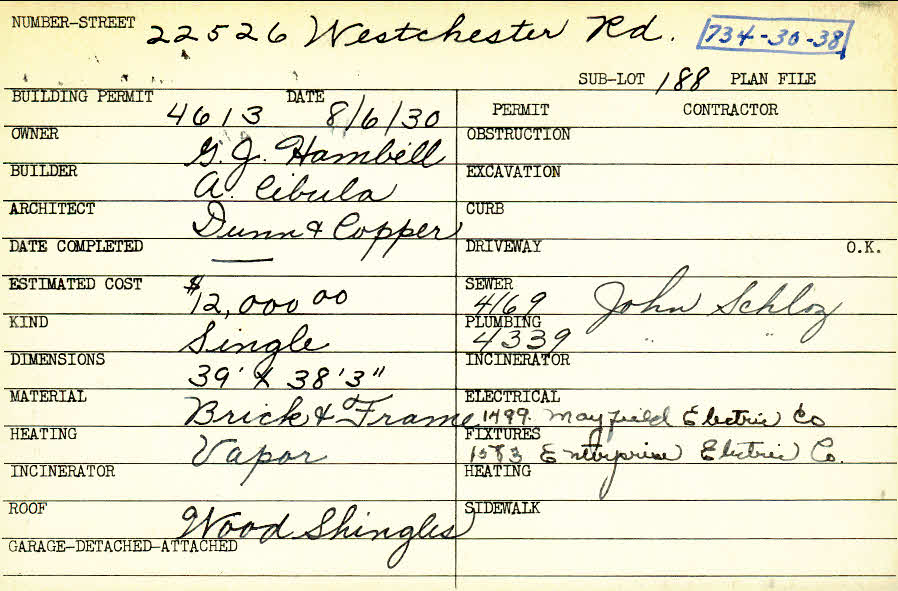 NUMBER-STREET 22526 Westchester Rd. 734-30-38
SUB-LOT 188 PLAN FILE
BUILDING PERMIT 4613 DATE 8/6/30
PERMIT CONTRACTOR
OWNER G. J. Hambill
OBSTRUCTION
BUILDER A. Cibula
EXCAVATION
ARCHITECT Dunn & Copper
CURB
DATE COMPLETED —
DRIVEWAY O.K.
ESTIMATED COST $12,000 00
SEWER 4169 John Schloz
KIND Single
PLUMBING 4339 " "
DIMENSIONS 39' x 38'3"
INCINERATOR
MATERIAL Brick & Frame
ELECTRICAL 1499. Mayfield Electric Co
HEATING Vapor
FIXTURES 1583 Enterprise Electric Co.
INCINERATOR
HEATING
ROOF Wood Shingles
SIDEWALK
GARAGE-DETACHED-ATTACHED